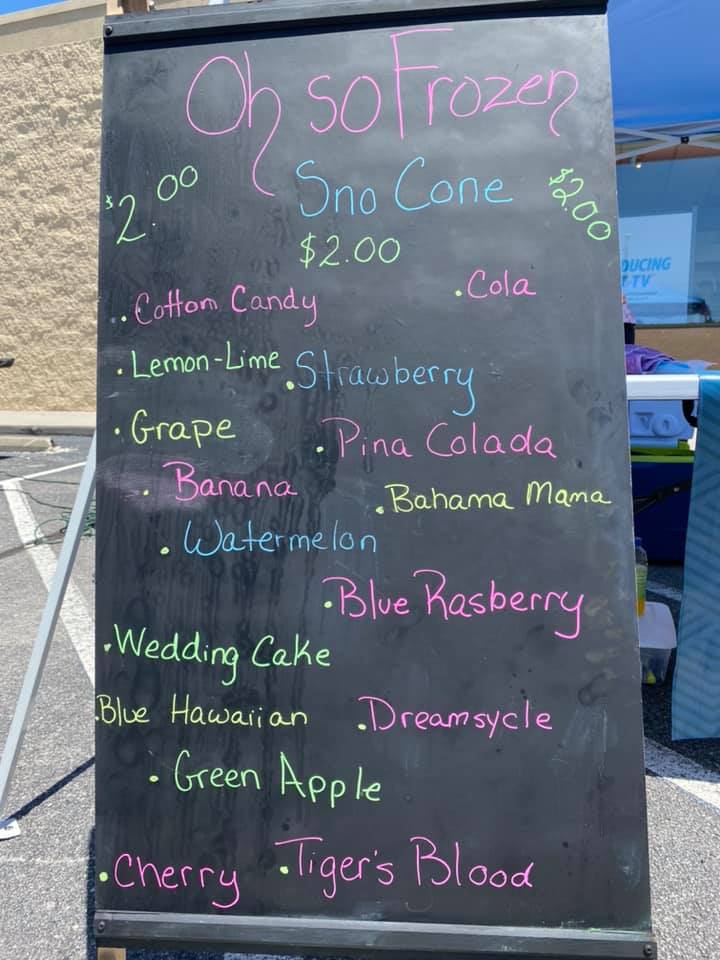 Oh so Frozen
$2.00
Sno Cone
$2.00
$2.00
. Cottom Candy
. Cola
. Lemon-Lime
. Strawberry
. Grape
. Pina Colada
. Banana
. Bahama Mama
. Watermelon
. Blue Rasberry
. Wedding Cake
. Blue Hawaiian
. Dreamsycle
. Green Apple
. Cherry
. Tiger's Blood
DUCING
TV